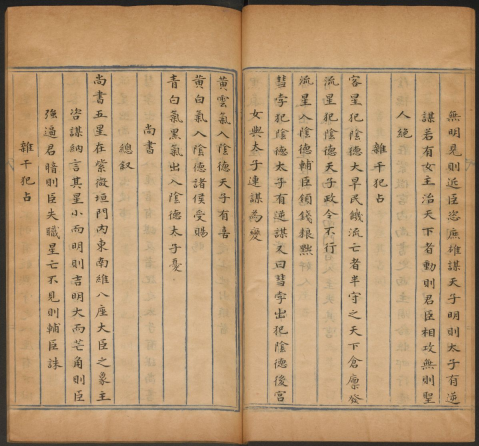 無明見則近臣恣庶雄謀天子明則太子有逆
謀若有女主治天下者動則君臣相攻無則聖
人絕
雜干犯占
客星犯陰德大旱民饑流亡者半守之天下倉廩發
流星犯陰德天子政令不行
流星入陰德輔臣
彗孛犯陰德太子有逆謀又曰彗孛出犯陰德後宮
女與太子連謀為變
黃雲氣入陰德天子有喜
黃白氣入陰德諸侯受賜
青白氣黑氣出入陰德太子憂
尚書
總叙
尚書五星在紫微垣門內東南維八座大臣之象主
咨謀納言其星小而明則吉明大而芒角則臣
強逼君暗則臣失職星亡不見則輔臣誅
雜干犯占